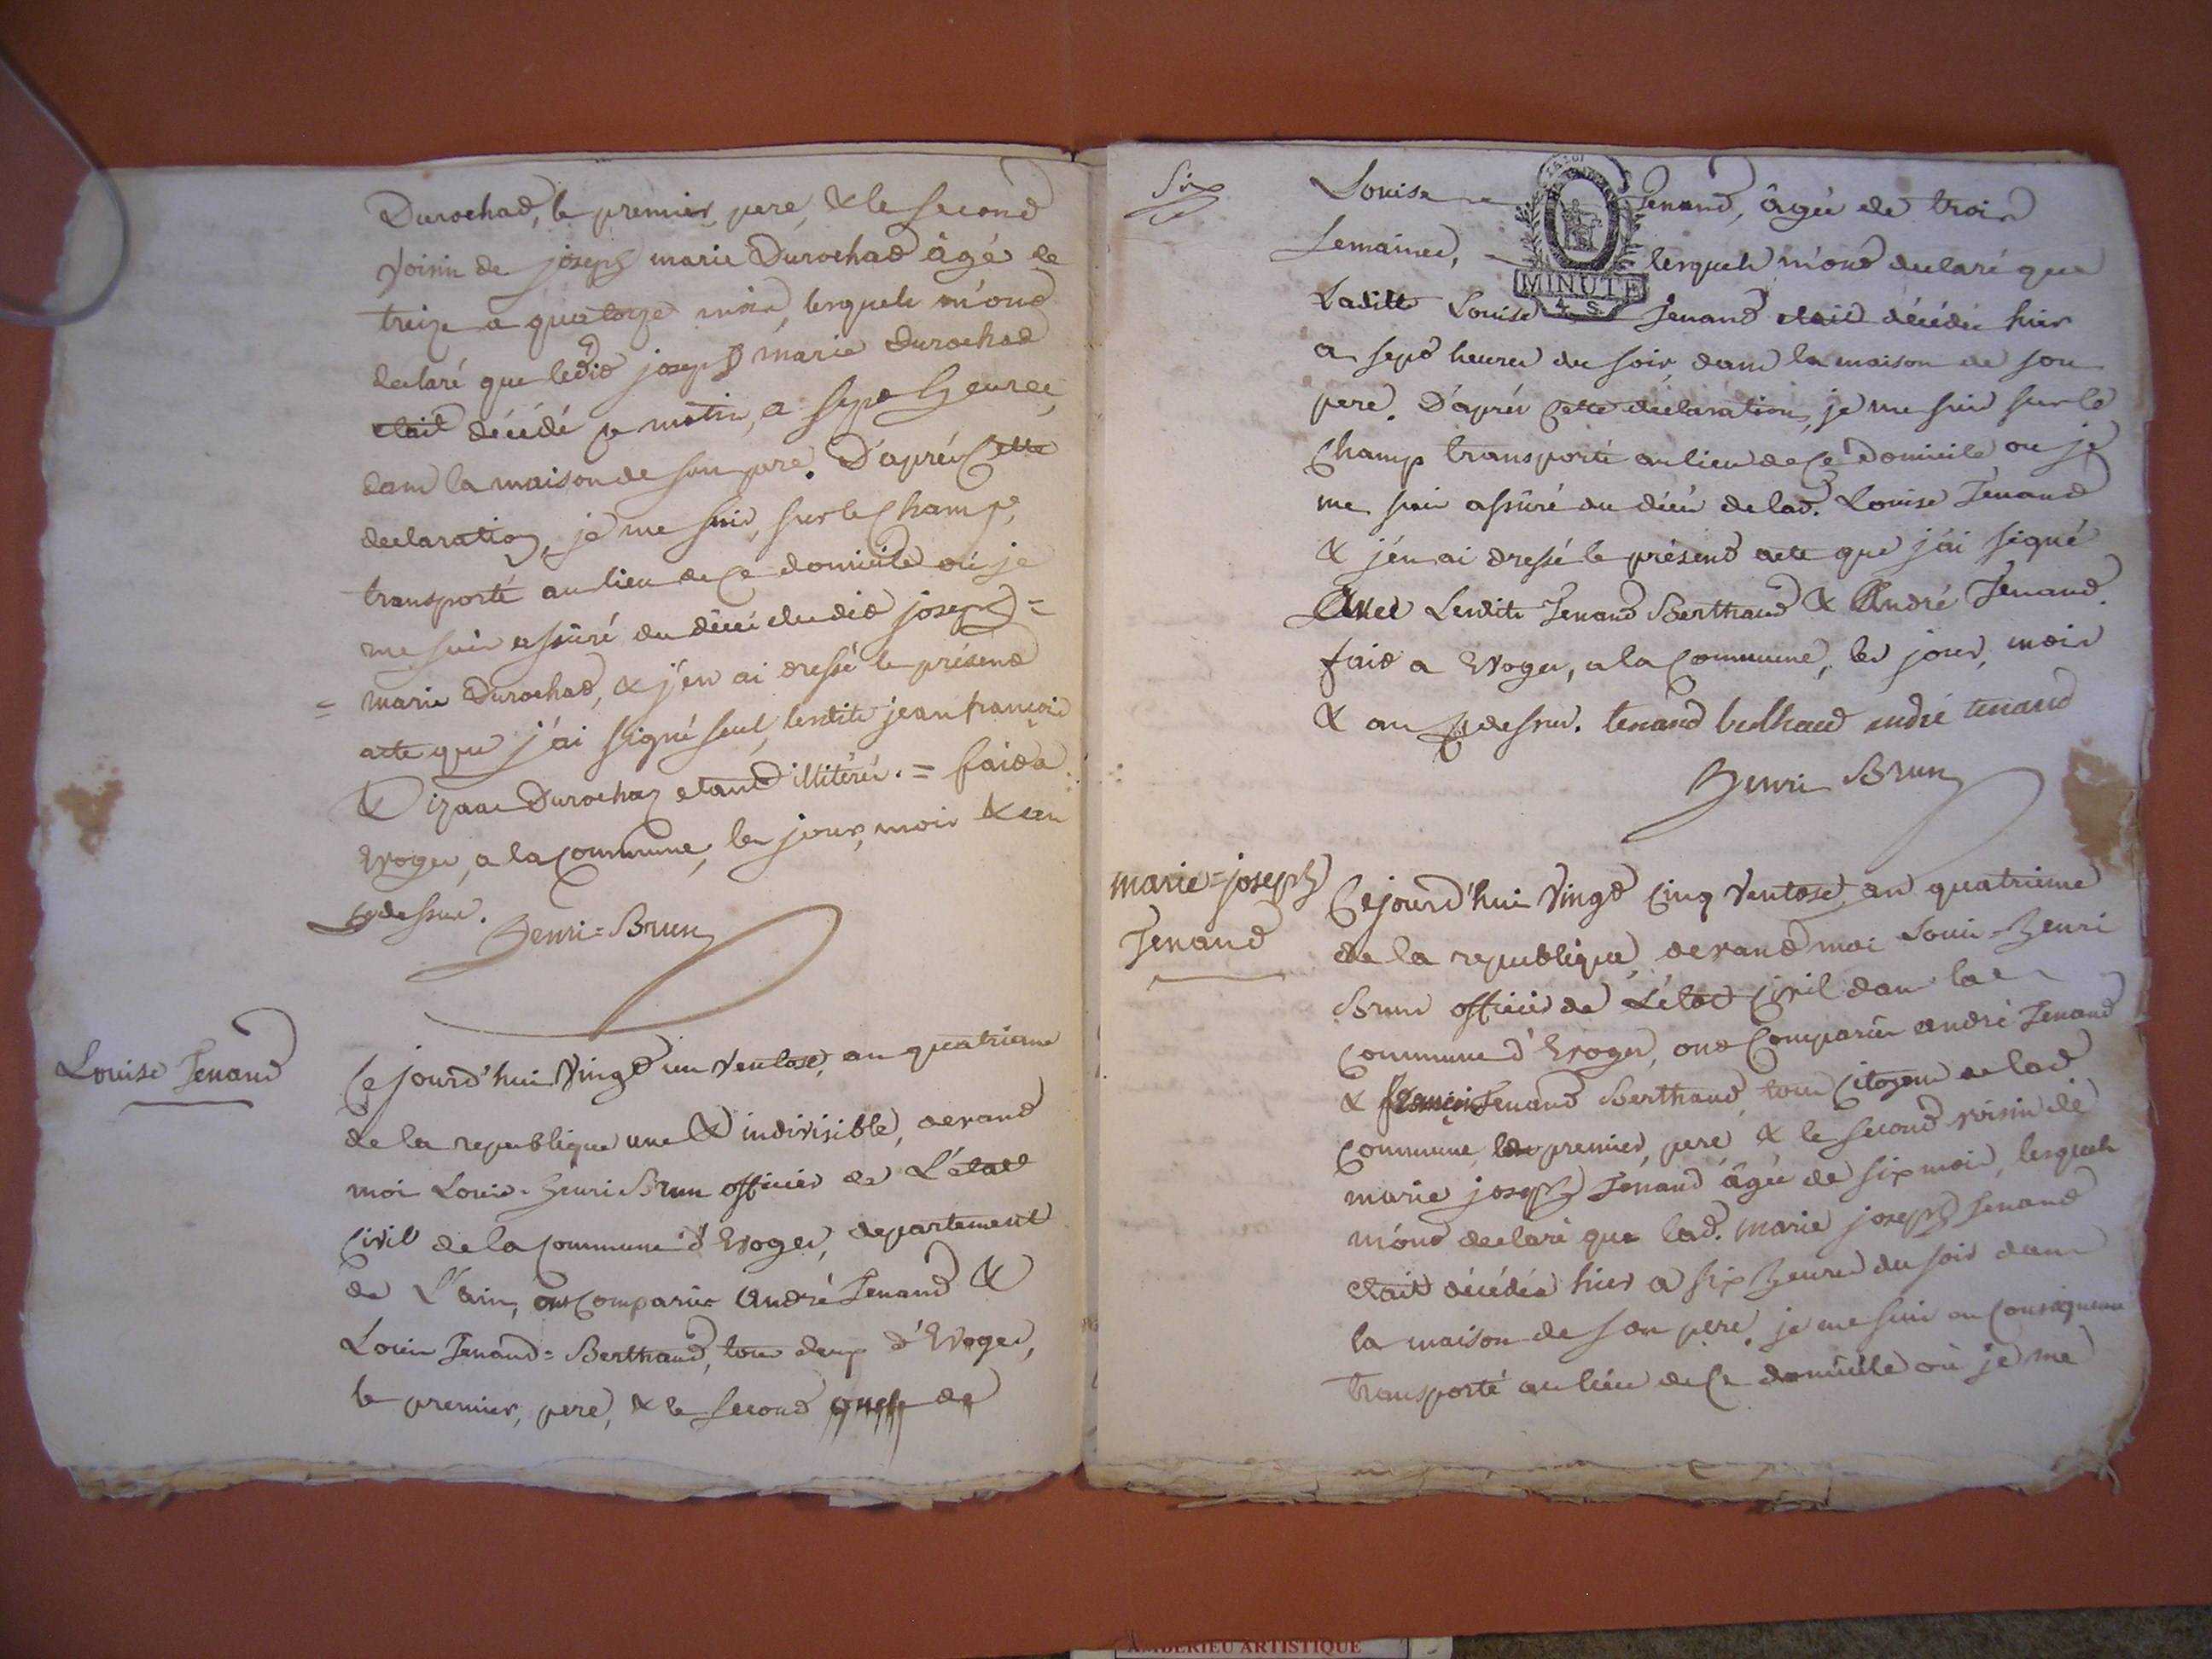 Durochad, le premier, pere, & le second
voisin de joseph marie Durochad âgé de
treize a quatorze mois, lesquels m'ont
declaré que ledit joseph marie Durochad
etait décédé ce matin, a sept heures,
dans la maison de son pere. D'aprés cette
declaration, je me suis, sur le champ,
transporté au lieu de ce domicile où je
me suis assûré du décés dudit joseph =
= marie Durochad, & j'en ai dressé le présent
acte que j'ai signé seul, lesdits jean françois
& izaac Durochaz etant illitérés. = fait a
Evoges, a la commune, les jour, mois & an
cy dessus.
Henri = Brun
Louise Tenand
Cejourd'hui vingt un ventose, an quatrieme
de la republique une & indivisible, devant
moi Louis = henri Brun officier de L'état
civil de la commune d'Evoges, departement
de L'ain, ont comparus André Tenand &
Louis Tenand = Berthand, tous deux d'Evoges,
le premier, pere, & le second oncle de
Six
Louise Tenand, âgée de trois
semaines, lesquels m'ont declaré que
Laditte Louise Tenand etait décédée hier
a sept heures du soir, dans la maison de son
pere. D'aprés cette declaration, je me suis sur le
champ transporté au lieu de ce domicile ou je
me suis assûré du décés de lad. Louise Tenand
& j'en ai dressé le présent acte que j'ai signé
Avec Lesdits Tenand Berthand & André Tenand.
fait a Evoges, a la commune, les jour, mois
& an cy dessus. tenand berthand andré tenand
Henri Brun
MINUTE
4 S
marie = joseph
Tenand
Cejourd'hui vingt cinq ventose, an quatrieme
de la republique, devant moi Louis = henri
Brun officier de L'état civil dans la
commune d'Evoges, ont comparus andré Tenand
& françois Tenand Berthand, tous citoyens de lad.
commune, le premier, pere, & le second voisin de
marie joseph Tenand âgée de six mois, lesquels
m'ont declaré que lad. marie joseph Tenand
etait décédée hier a six heures du soir dans
la maison de son pere. je me suis en consequence
transporté au lieu de ce domicile où je me
AMBERIEU ARTISTIQUE